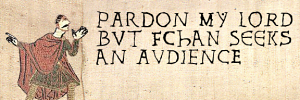 PARDON MY LORD
BVT FCHAN SEEKS
AN AVDIENCE